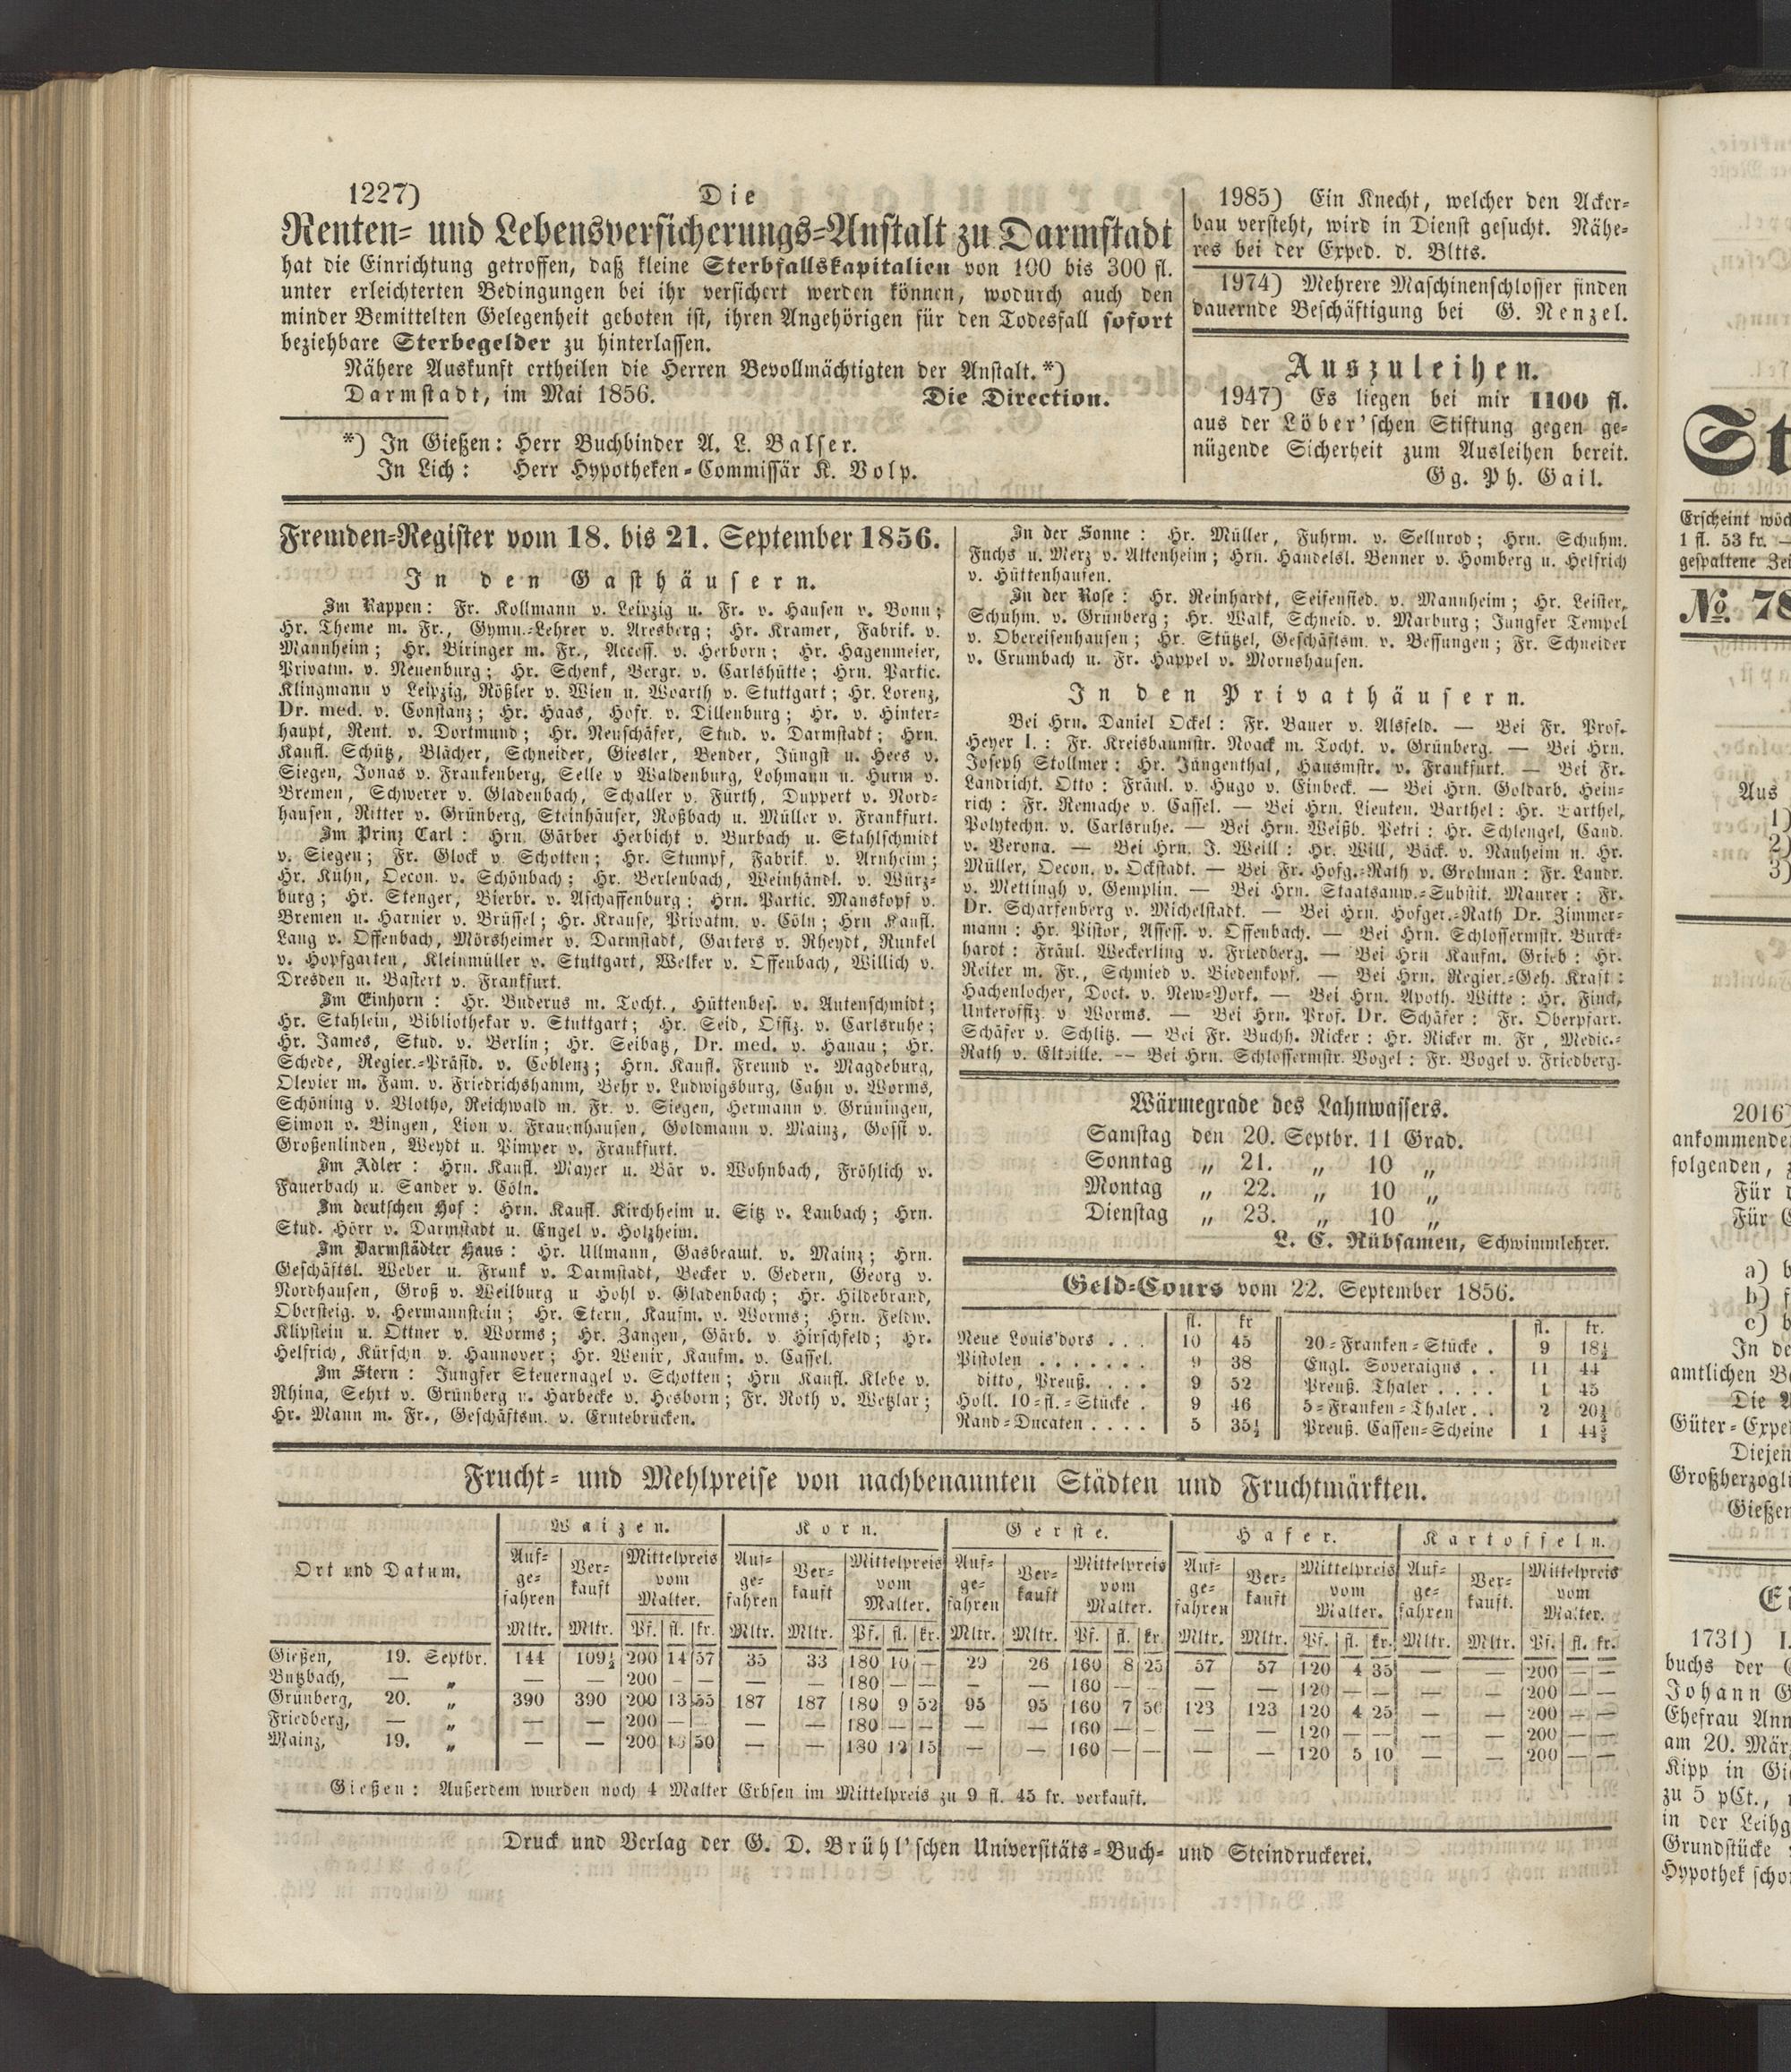 1227) Die
Renten- und Lebensversicherungs-Anstalt zu Darmstadt
hat die Einrichtung getroffen, daß kleine Sterbfallskapitalien von 100 bis 300 fl.
unter erleichterten Bedingungen bei ihr versichert werden können, wodurch auch den
minder Bemittelten Gelegenheit geboten ist, ihren Angehörigen für den Todesfall sofort
beziehbare Sterbegelder zu hinterlassen.
Nähere Auskunft ertheilen die Herren Bevollmächtigten der Anstalt.*)
Darmstadt, im Mai 1856. Die Direction.
*) In Gießen: Herr Buchbinder A. L. Balser.
In Lich: Herr Hypotheken-Commissär K. Volp.
1985) Ein Knecht, welcher den Acker-
bau versteht, wird in Dienst gesucht. Nähe-
res bei der Exped. d. Bltts.
1974) Mehrere Maschinenschlosser finden
dauernde Beschäftigung bei G. Nenzel.
Auszuleihen.
1947) Es liegen bei mir 1100 fl.
aus der Löber'schen Stiftung gegen ge-
nügende Sicherheit zum Ausleihen bereit.
Gg. Ph. Gail.
Fremden-Register vom 18. bis 21. September 1856.
In den Gasthäusern.
Im Rappen: Fr. Kollmann v. Leipzig u. Fr. v. Hausen v. Bonn;
Hr. Theme m. Fr., Gymn.-Lehrer v. Aresberg; Hr. Kramer, Fabrik. v.
Mannheim; Hr. Biringer m. Fr., Access. v. Herborn; Hr. Hagenmeier,
Privatm. v. Neuenburg; Hr. Schenk, Bergr. v. Carlshütte; Hrn. Partic.
Klingmann v Leipzig, Rößler v. Wien u. Woarth v. Stuttgart; Hr. Lorenz,
Dr. med. v. Constanz; Hr. Haas, Hofr. v. Dillenburg; Hr. v. Hinter-
haupt, Rent. v. Dortmund; Hr. Neuschäfer, Stud. v. Darmstadt; Hrn.
Kaufl. Schütz, Blächer, Schneider, Giesler, Bender, Jüngst u. Hees v.
Siegen, Jonas v. Frankenberg, Selle v Waldenburg, Lohmann u. Hurm v.
Bremen, Schwerer v. Gladenbach, Schaller v. Fürth, Duppert v. Nord-
hausen, Ritter v. Grünberg, Steinhäuser, Roßbach u. Müller v. Frankfurt.
Im Prinz Carl: Hrn. Gärber Herbicht v. Burbach u. Stahlschmidt
v. Siegen; Fr. Glock v. Schotten; Hr. Stumpf, Fabrik. v. Arnheim;
Hr. Kühn, Oecon. v. Schönbach; Hr. Berlenbach, Weinhändl. v. Würz-
burg; Hr. Stenger, Bierbr. v. Aschaffenburg; Hrn. Partic. Manskopf v.
Bremen u. Harnier v. Brüssel; Hr. Krause, Privatm. v. Cöln; Hrn Kaufl.
Lang v. Offenbach, Mörsheimer v. Darmstadt, Garters v. Rheydt, Runkel
v. Hopfgarten, Kleinmüller v. Stuttgart, Welker v. Offenbach, Willich v.
Dresden u. Bastert v. Frankfurt.
Im Einhorn: Hr. Buderus m. Tocht., Hüttenbes. v. Autenschmidt;
Hr. Stahlein, Bibliothekar v. Stuttgart; Hr. Seid, Offiz. v. Carlsruhe;
Hr. James, Stud. v. Berlin; Hr. Seibatz, Dr. med. v. Hanau; Hr.
Schede, Regier.-Präsid. v. Coblenz; Hrn. Kaufl. Freund v. Magdeburg,
Olevier m. Fam. v. Friedrichshamm, Behr v. Ludwigsburg, Cahn v. Worms,
Schöning v. Vlotho, Reichwald m. Fr. v. Siegen, Hermann v. Grüningen,
Simon v. Bingen, Lion v. Frauenhausen, Goldmann v. Mainz, Gossi v.
Großenlinden, Weydt u. Pimper v. Frankfurt.
Im Adler: Hrn. Kaufl. Mayer u. Bär v. Wohnbach, Fröhlich v.
Fauerbach u. Sander v. Cöln.
Im deutschen Hof: Hrn. Kaufl. Kirchheim u. Sitz v. Laubach; Hrn.
Stud. Hörr v. Darmstadt u. Engel v. Holzheim.
Im Darmstädter Haus: Hr. Ullmann, Gasbeamt. v. Mainz; Hrn.
Geschäftsl. Weber u. Frank v. Darmstadt, Becker v. Gedern, Georg v.
Nordhausen, Groß v. Weilburg u Hohl v. Gladenbach; Hr. Hildebrand,
Obersteig. v. Hermannstein; Hr. Stern, Kaufm. v. Worms; Hrn. Feldw.
Klipstein u. Ottner v. Worms; Hr. Zangen, Gärb. v. Hirschfeld; Hr.
Helfrich, Kürschn v. Hannover; Hr. Wenir, Kaufm. v. Cassel.
Im Stern: Jungfer Steuernagel v. Schotten; Hrn Kaufl. Klebe v.
Rhina, Sehrt v. Grünberg u. Harbecke v. Hesborn; Fr. Roth v. Wetzlar;
Hr. Mann m. Fr., Geschäftsm. v. Erntebrücken.
In der Sonne: Hr. Müller, Fuhrm. v. Sellnrod; Hrn. Schuhm.
Fuchs u. Merz v. Altenheim; Hrn. Handelsl. Benner v. Homberg u. Helfrich
v. Hüttenhausen.
In der Rose: Hr. Reinhardt, Seifensied. v. Mannheim; Hr. Leister,
Schuhm. v. Grünberg; Hr. Walk, Schneid. v. Marburg; Jungfer Tempel
v. Obereisenhausen; Hr. Stützel, Geschäftsm. v. Bessungen; Fr. Schneider
v. Crumbach u. Fr. Happel v. Mornshausen.
In den Privathäusern.
Bei Hrn. Daniel Ockel: Fr. Bauer v. Alsfeld. — Bei Fr. Prof.
Heyer I.: Fr. Kreisbaumstr. Noack m. Tocht. v. Grünberg. — Bei Hrn.
Joseph Stollmer: Hr. Jüngenthal, Hausmstr. v. Frankfurt. — Bei Fr.
Landricht. Otto: Fräul. v. Hugo v. Einbeck. — Bei Hrn. Goldarb. Hein-
rich: Fr. Remache v. Cassel. — Bei Hrn. Lieuten. Barthel: Hr. Barthel,
Polytechn. v. Carlsruhe. — Bei Hrn. Weißb. Petri: Hr. Schlengel, Cand.
v. Verona. — Bei Hrn. J. Weill: Hr. Will, Bäck. v. Nauheim u. Hr.
Müller, Oecon. v. Ockstadt. — Bei Fr. Hofg.-Rath v. Grolman: Fr. Landr.
v. Mettingh v. Gemplin. — Bei Hrn. Staatsanw.-Substit. Maurer: Fr.
Dr. Scharfenberg v. Michelstadt. — Bei Hrn. Hofger.-Rath Dr. Zimmer-
mann: Hr. Pistor, Assess. v. Offenbach. — Bei Hrn. Schlossermstr. Burck-
hardt: Fräul. Weckerling v. Friedberg. — Bei Hrn Kaufm. Grieb: Hr.
Reiter m. Fr., Schmied v. Biedenkopf. — Bei Hrn. Regier.-Geh. Kraft:
Hachenlocher, Doct. v. New-York. — Bei Hrn. Apoth. Witte: Hr. Finck,
Unteroffiz. v Worms. — Bei Hrn. Prof. Dr. Schäfer: Fr. Oberpfarr.
Schäfer v. Schlitz. — Bei Fr. Buchh. Ricker: Hr. Ricker m. Fr, Medic.-
Rath v. Eltville. — Bei Hrn. Schlossermstr. Vogel: Fr. Vogel v. Friedberg.
Wärmegrade des Lahnwassers.
Samstag den 20. Septbr. 11 Grad.
Sonntag „ 21. „ 10 „
Montag „ 22. „ 10 „
Dienstag „ 23. „ 10 „
L. C. Rübsamen, Schwimmlehrer.
Geld-Cours vom 22. September 1856.
fl. kr fl. kr.
Neue Louis'dors . . . 10 45 20-Franken-Stücke . 9 18½
Pistolen . . . . . . . 9 38 Engl. Soveraigns . . 11 44
ditto, Preuß. . . . 9 52 Preuß. Thaler . . . . 1 45
Holl. 10-fl.-Stücke . 9 46 5-Franken-Thaler . . 2 20½
Rand-Ducaten . . . . 5 35½ Preuß. Cassen-Scheine 1
Frucht- und Mehlpreise von nachbenannten Städten und Fruchtmärkten.
Ort und Datum. Waizen. Korn. Gerste. Hafer. Kartoffeln.
Auf-ge-fahren Ver-kauft Mittelpreis vom Malter. Auf-ge-fahren Ver-kauft Mittelpreis vom Malter. Auf-ge-fahren Ver-kauft Mittelpreis vom Malter. Auf-ge-fahren Ver-kauft Mittelpreis vom Malter. Auf-ge-fahren Ver-kauft. Mittelpreis vom Malter.
Mltr. Mltr. Pf. fl. kr. Mltr. Mltr. Pf. fl. kr. Mltr. Mltr. Pf. fl. kr. Mltr. Mltr. Pf. fl. kr. Mltr. Mltr. Pf. fl. kr.
Gießen, 19. Septbr. 144 109½ 200 14 57 35 33 180 10 — 29 26 160 8 25 57 57 120 4 35 — — 200 — —
Butzbach, — „ — — 200 — — — — 180 — — — — 160 — — — — 120 — — — — 200 — —
Grünberg, 20. „ 390 390 200 13 55 187 187 180 9 52 95 95 160 7 56 123 123 120 4 25 — — 200 — —
Friedberg, — „ — — 200 — — — — 180 — — — — 160 — — — — 120 — — — — 200 — —
Mainz, 19. „ — — 200 50 — — 180 12 15 — — 160 — — — — 120 5 10 — — 200 — —
Gießen: Außerdem wurden noch 4 Malter Erbsen im Mittelpreis zu 9 fl. 45 kr. verkauft.
Druck und Verlag der G. D. Brühl'schen Universitäts-Buch- und Steindruckerei.
St
Erscheint wöch
1 fl. 53 kr. —
gespaltene Zei
No. 78
Aus
1)
2)
3)
2016)
ankommende
folgenden,
Für
Für
a)
b)
c)
In de
amtlichen
Die
Güter-Expe
Diejen
Großherzogli
Gießen
1731)
buchs der
Johann G
Ehefrau Ann
am 20. Mär
Kipp in Gi
zu 5 pCt.,
in der Leihg
Grundstücke
Hypothek scho